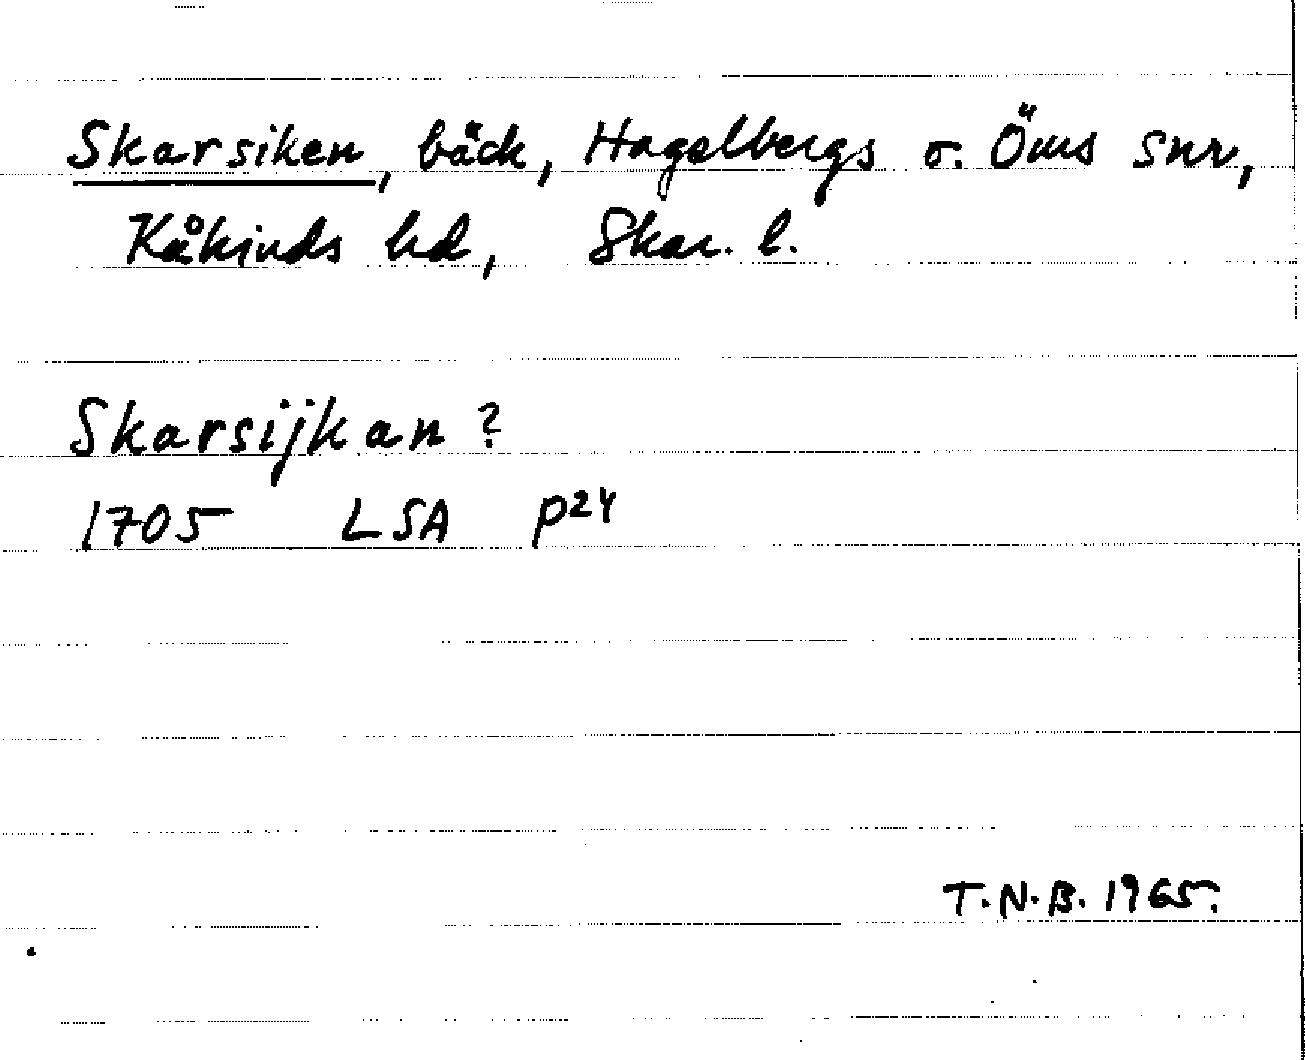 Skarsiken, bäck, Hagelbergs o. Öms snr,
Kåkinds hd, Skar. l.
Skarsijkan?
1705 LSA P24
T.N.B. 1965.